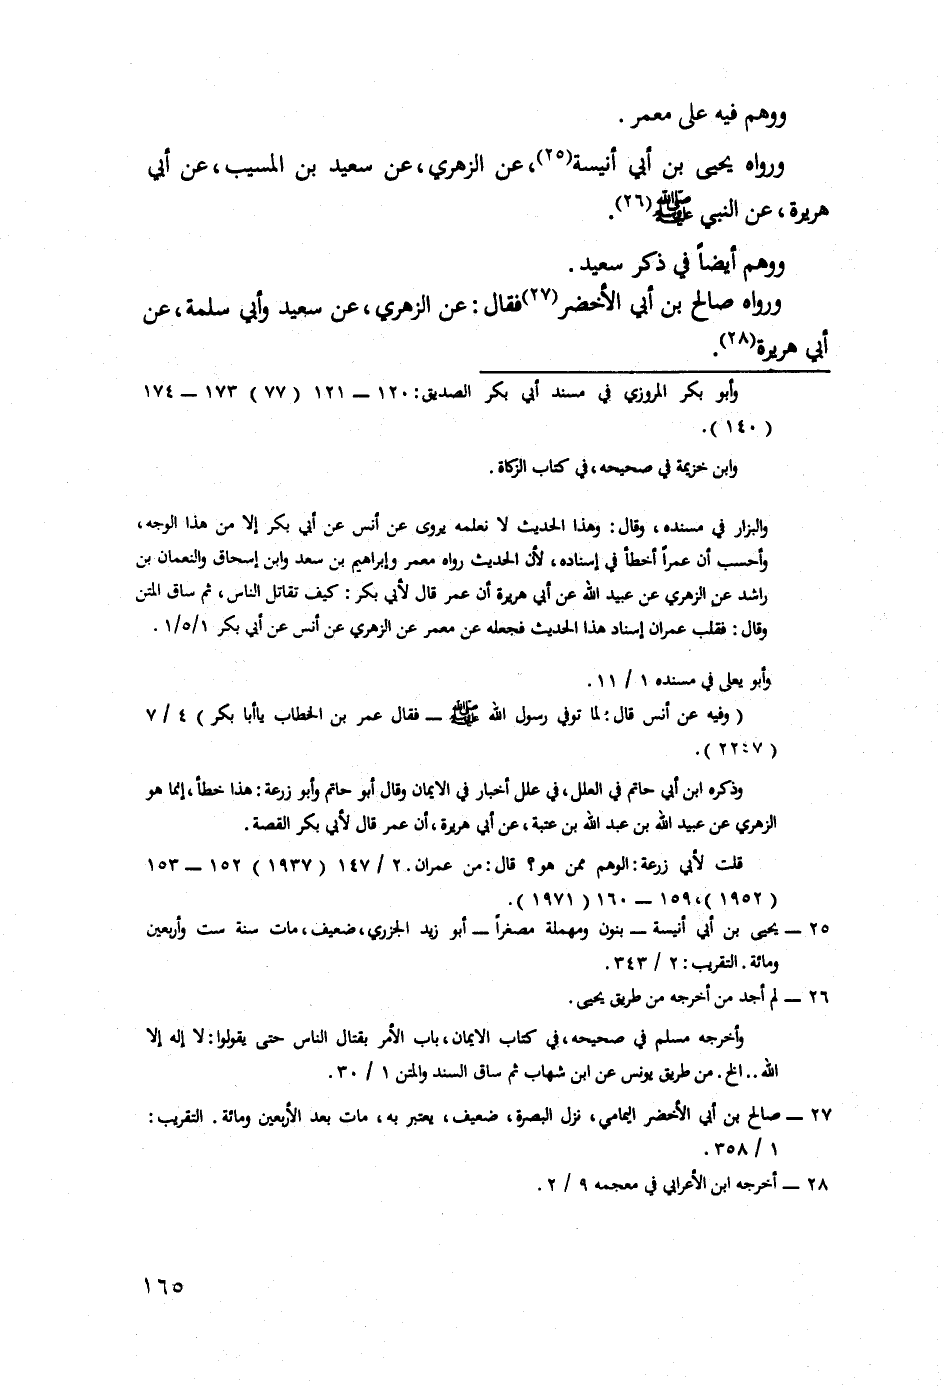 ووهم فيه على معمر .
ورواه يحيى بن أبي أنيسة(٢٥)، عن الزهري، عن سعيد بن المسيب، عن أبي
هريرة، عن النبي ﷺ(٢٦).
ووهم أيضاً في ذكر سعيد .
ورواه صالح بن أبي الأخضر(٢٧)فقال : عن الزهري، عن سعيد وأبي سلمة، عن
أبي هريرة(٢٨).
وأبو بكر المروزي في مسند أبي بكر الصديق: ١٢٠ ــ ١٢١ ( ٧٧ ) ١٧٣ ــ ١٧٤
( ١٤٠ ).
وابن خزيمة في صحيحه، في كتاب الزكاة .
والبزار في مسنده، وقال : وهذا الحديث لا نعلمه يروى عن أنس عن أبي بكر إلا من هذا الوجه،
وأحسب أن عمراً أخطأ في إسناده، لأن الحديث رواه معمر وإبراهيم بن سعد وابن إسحاق والنعمان بن
راشد عن الزهري عن عبيد الله عن أبي هريرة أن عمر قال لأبي بكر : كيف تقاتل الناس، ثم ساق المتن
وقال : فقلب عمران إسناد هذا الحديث فجعله عن معمر عن الزهري عن أنس عن أبي بكر ١/٥/١ .
وأبو يعلى في مسنده ١ / ١١ .
( وفيه عن أنس قال : لما توفي رسول الله ﷺ ــ فقال عمر بن الخطاب ياأبا بكر ) ٤ / ٧
( ٢٢٤٧ ).
وذكره ابن أبي حاتم في العلل، في علل أخبار في الايمان وقال أبو حاتم وأبو زرعة : هذا خطأ، إنما هو
الزهري عن عبيد الله بن عبد الله بن عتبة، عن أبي هريرة، أن عمر قال لأبي بكر القصة .
قلت لأبي زرعة : الوهم ممن هو؟ قال : من عمران . ٢ / ١٤٧ ( ١٩٣٧ ) ١٥٢ ــ ١٥٣
( ١٩٥٢ )، ١٥٩ ــ ١٦٠ ( ١٩٧١ ).
٢٥ ــ يحيى بن أبي أنيسة ــ بنون ومهملة مصغراً ــ أبو زيد الجزري، ضعيف، مات سنة ست وأربعين
ومائة . التقريب : ٢ / ٣٤٣ .
٢٦ ــ لم أجد من أخرجه من طريق يحيى .
وأخرجه مسلم في صحيحه، في كتاب الايمان، باب الأمر بقتال الناس حتى يقولوا : لا إله إلا
الله .. الخ . من طريق يونس عن ابن شهاب ثم ساق السند والمتن ١ / ٣٠ .
٢٧ ــ صالح بن أبي الأخضر اليمامي، نزل البصرة، ضعيف، يعتبر به، مات بعد الأربعين ومائة . التقريب :
١ / ٣٥٨ .
٢٨ ــ أخرجه ابن الأعرابي في معجمه ٩ / ٢ .
١٦٥